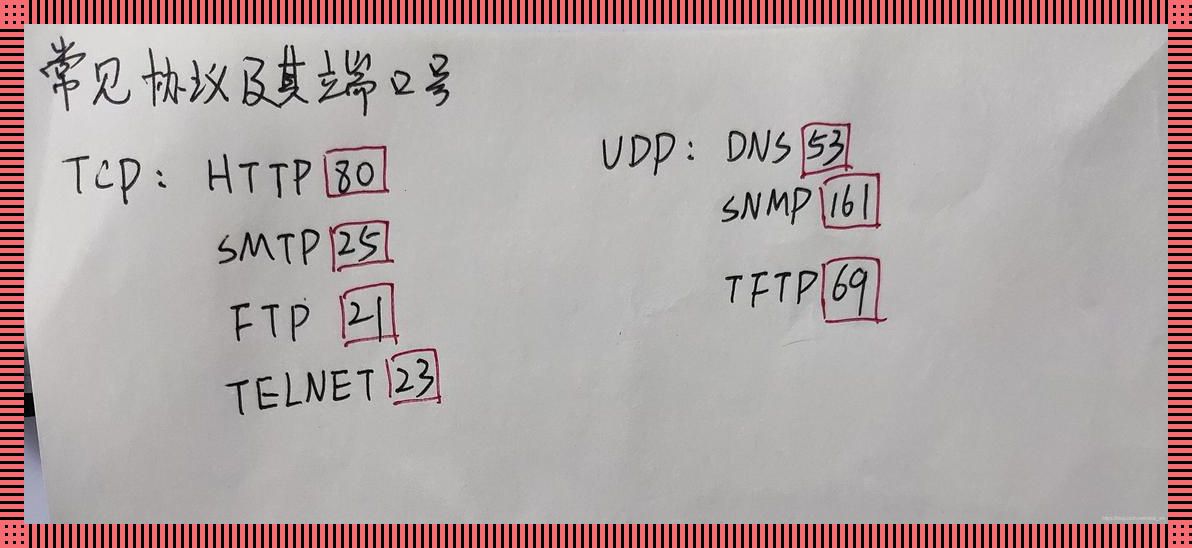 常见协议及其端口号
TCP: HTTP 80
SMTP 25
FTP 21
TELNET 23
UDP: DNS 53
SNMP 161
TFTP 69